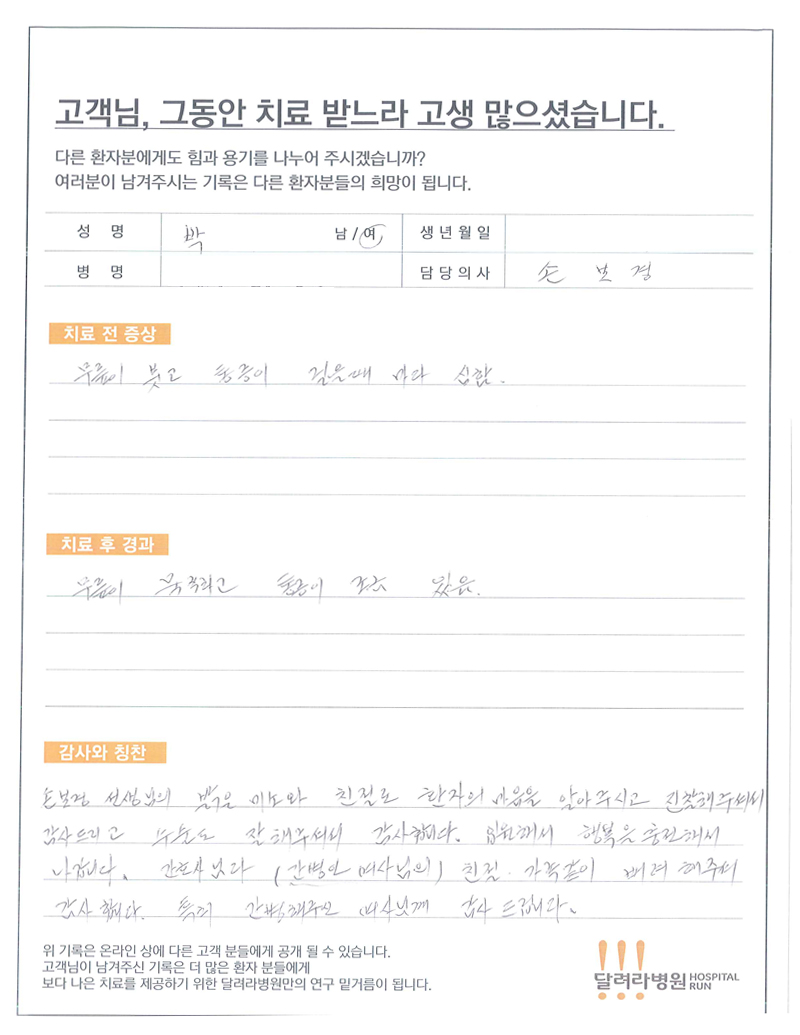 고객님, 그동안 치료 받느라 고생 많으셨습니다.
다른 환자분에게도 힘과 용기를 나누어 주시겠습니까?
여러분이 남겨주시는 기록은 다른 환자분들의 희망이 됩니다.
성 명 박 남 / 여 생년월일
병 명 담당의사 손 보 경
치료 전 증상
무릎이 붓고 통증이 걸을때 마다 심함.
치료 후 경과
무릎이 통증이 조금 있음.
감사와 칭찬
손보경 선생님의 밝은 미소와 친절로 환자의 마음을 알아주시고 진찰해주셔서
감사드리고 수술도 잘해주셔서 감사합니다. 입원해서 행복을 충전해서
나갑니다. 간호사님다 (간병인 여사님의) 친절. 가족같이 배려 해주셔
감사 합니다. 특히 간병해주신 여사님께 감사 드립니다.
위 기록은 온라인 상에 다른 고객 분들에게 공개 될 수 있습니다.
고객님이 남겨주신 기록은 더 많은 환자 분들에게
보다 나은 치료를 제공하기 위한 달려라병원만의 연구 밑거름이 됩니다.
달려라병원 HOSPITAL RUN